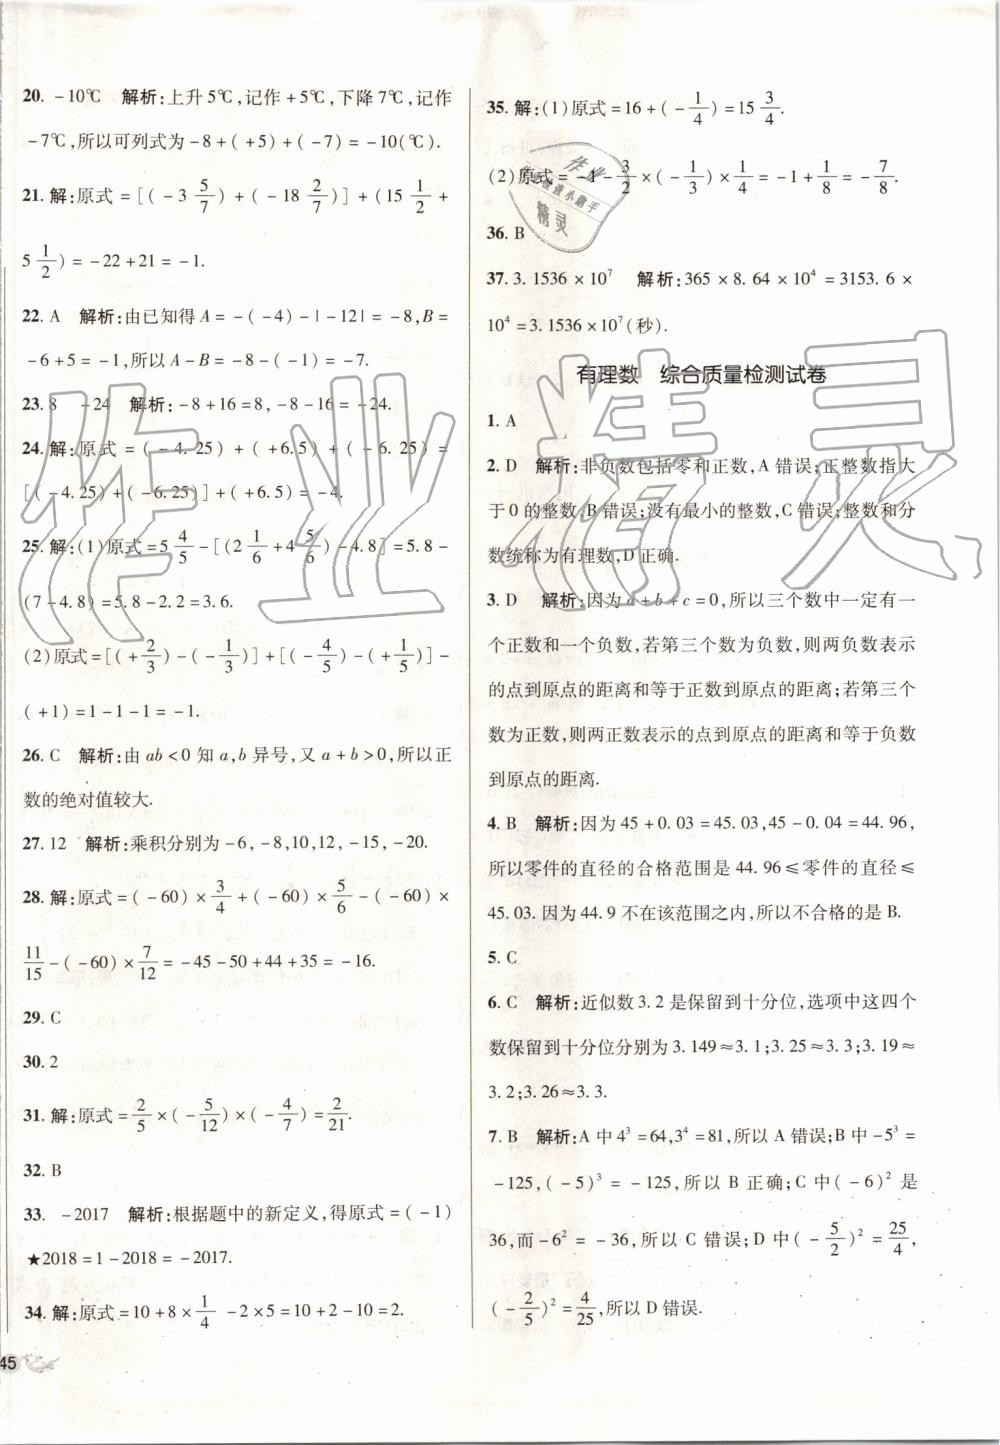 20. -10℃ 解析:上升5℃,记作+5℃,下降7℃,记作
-7℃,所以可列式为-8+(+5)+(-7)=-10(℃).
21. 解:原式=[(-3 5/7)+(-18 2/7)]+(15 1/2+
5 1/2)=-22+21=-1.
22. A 解析:由已知得A=-(-4)-|-12|=-8,B=
-6+5=-1,所以A-B=-8-(-1)=-7.
23. 8 -24 解析:-8+16=8,-8-16=-24.
24. 解:原式=(-4.25)+(+6.5)+(-6.25)=
[(-4.25)+(-6.25)]+(+6.5)=-4.
25. 解:(1)原式=5 4/5-[(2 1/6+4 5/6)-4.8]=5.8-
(7-4.8)=5.8-2.2=3.6.
(2)原式=[(+2/3)-(-1/3)]+[(-4/5)-(+1/5)]-
(+1)=1-1-1=-1.
26. C 解析:由ab<0知a,b异号,又a+b>0,所以正
数的绝对值较大.
27. 12 解析:乘积分别为-6,-8,10,12,-15,-20.
28. 解:原式=(-60)×3/4+(-60)×5/6-(-60)×
11/15-(-60)×7/12=-45-50+44+35=-16.
29. C
30. 2
31. 解:原式=2/5×(-5/12)×(-4/7)=2/21.
32. B
33. -2017 解析:根据题中的新定义,得原式=(-1)
★2018=1-2018=-2017.
34. 解:原式=10+8×1/4-2×5=10+2-10=2.
45
35. 解:(1)原式=16+(-1/4)=15 3/4.
(2)原式=-1-3/2×(-1/3)×1/4=-1+1/8=-7/8.
36. B
37. 3.1536×10⁷ 解析:365×8.64×10⁴=3153.6×
10⁴=3.1536×10⁷(秒).
有理数 综合质量检测试卷
1. A
2. D 解析:非负数包括零和正数,A错误;正整数指大
于0的整数,B错误;没有最小的整数,C错误;整数和分
数统称为有理数,D正确.
3. D 解析:因为a+b+c=0,所以三个数中一定有一
个正数和一个负数,若第三个数为负数,则两负数表示
的点到原点的距离和等于正数到原点的距离;若第三个
数为正数,则两正数表示的点到原点的距离和等于负数
到原点的距离.
4. B 解析:因为45+0.03=45.03,45-0.04=44.96,
所以零件的直径的合格范围是44.96≤零件的直径≤
45.03.因为44.9不在该范围之内,所以不合格的是B.
5. C
6. C 解析:近似数3.2是保留到十分位,选项中这四个
数保留到十分位分别为3.149≈3.1;3.25≈3.3;3.19≈
3.2;3.26≈3.3.
7. B 解析:A中4³=64,3⁴=81,所以A错误;B中-5³=
-125,(-5)³=-125,所以B正确;C中(-6)²是
36,而-6²=-36,所以C错误;D中(-5/2)²=25/4,
(-2/5)²=4/25,所以D错误.
作业精灵
作业
作业检查小助手
精灵